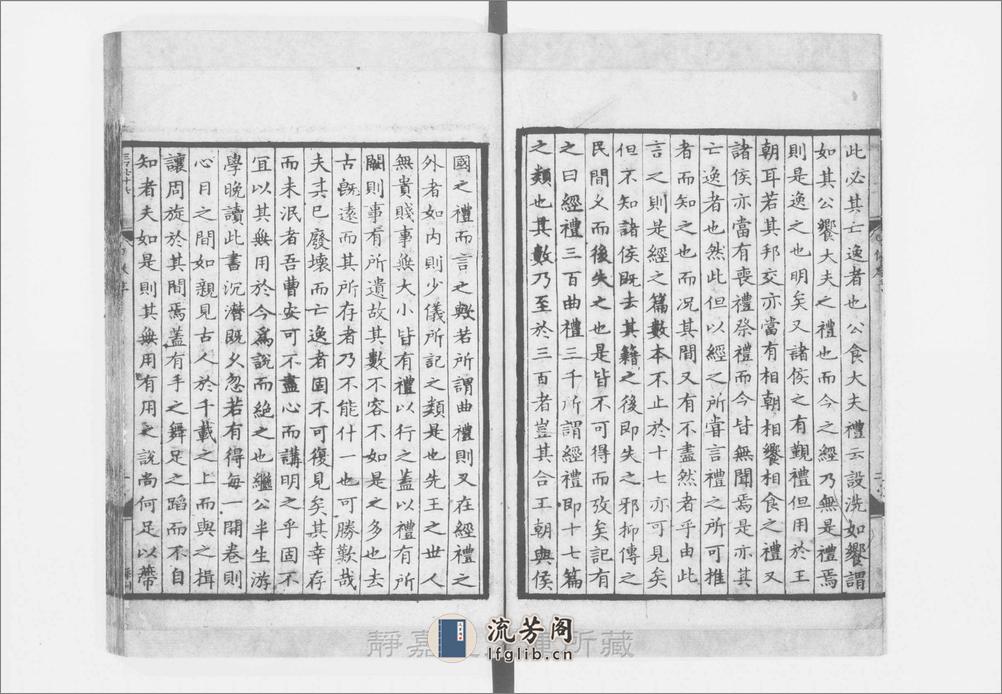 此必其亡逸者也公食大夫禮云設洗如饗謂
如其公饗大夫之禮也而今之經乃無是禮焉
則是逸之也明矣又諸侯之有覲禮但用於王
朝耳若其邦交亦當有相朝相饗相食之禮又
諸侯亦當有喪禮祭禮而今皆無聞焉是亦其
亡逸者也然此但以經之所甞言禮之所可推
者而知之也而况其間又有不盡然者乎由此
言之則是經之篇數本不止於十七亦可見矣
但不知諸侯既去其籍之後即失之邪抑傳之
民間久而後失之也是皆不可得而攷矣記有
之曰經禮三百曲禮三千所謂經禮即十七篇
之類也其數乃至於三百者豈其合王朝與侯
國之禮而言之歟若所謂曲禮則又在經禮之
外者如內則少儀所記之類是也先王之世人
無貴賤事無大小皆有禮以行之蓋以禮有所
闕則事有所遺故其數不容不如是之多也去
古既遠而其所存者乃不能什一也可勝歎哉
夫其已廢壞而亡逸者固不可復見矣其幸存
而未泯者吾曹安可不盡心而講明之乎固不
宜以其無用於今爲說而絕之也繼公半生游
學晚讀此書沉潛既乆忽若有得每一開卷則
心目之間如親見古人於千載之上而與之揖
讓周旋於其間焉蓋有手之舞足之蹈而不自
知者夫如是則其無用有用之說尚何足以蔕
靜嘉 所藏
流芳阁
lfglib.cn